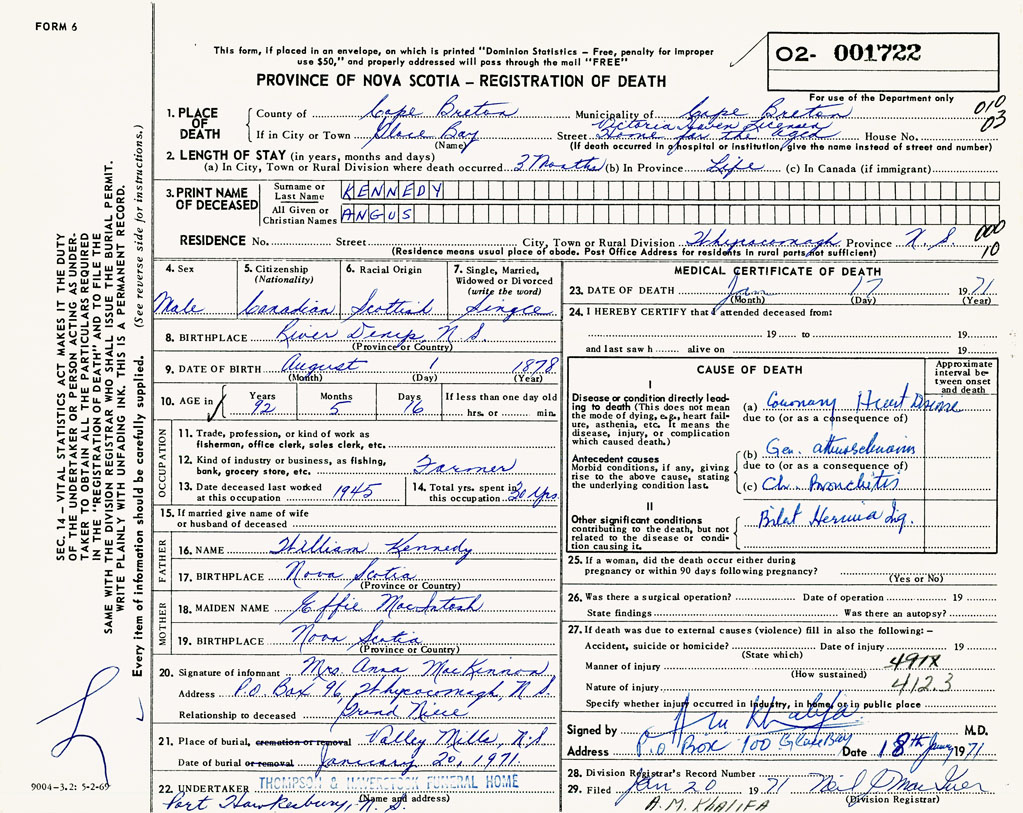 FORM 6
This form, if placed in an envelope, on which is printed "Dominion Statistics – Free, penalty for improper
use $50," and properly addressed will pass through the mail "FREE"
PROVINCE OF NOVA SCOTIA – REGISTRATION OF DEATH
02- 001722
For use of the Department only
010
03
1. PLACE OF DEATH
County of Cape Breton Municipality of Cape Breton
Victoria Haven Licensed
If in City or Town Glace Bay Street Home for the Aged House No.
(Name) (If death occurred in a hospital or institution, give the name instead of street and number)
2. LENGTH OF STAY (in years, months and days)
(a) In City, Town or Rural Division where death occurred 3 Months (b) In Province Life (c) In Canada (if immigrant)
3. PRINT NAME OF DECEASED
Surname or Last Name KENNEDY
All Given or Christian Names ANGUS
000
10
RESIDENCE No. Street City, Town or Rural Division Whycocomagh Province N.S
(Residence means usual place of abode. Post Office Address for residents in rural parts not sufficient)
4. Sex
Male
5. Citizenship
(Nationality)
Canadian
6. Racial Origin
Scottish
7. Single, Married,
Widowed or Divorced
(write the word)
Single
8. BIRTHPLACE River Denys, N S.
(Province or Country)
9. DATE OF BIRTH August 1 1878
(Month) (Day) (Year)
10. AGE in Years Months Days If less than one day old
92 5 16 hrs. or min.
OCCUPATION
11. Trade, profession, or kind of work as
fisherman, office clerk, sales clerk, etc.
12. Kind of industry or business, as fishing,
bank, grocery store, etc. Farmer
13. Date deceased last worked
at this occupation 1945
14. Total yrs. spent in
this occupation 30 yrs.
15. If married give name of wife
or husband of deceased
FATHER
16. NAME William Kennedy
17. BIRTHPLACE Nova Scotia
(Province or Country)
MOTHER
18. MAIDEN NAME Effie MacIntosh
19. BIRTHPLACE Nova Scotia
(Province or Country)
20. Signature of informant Mrs. Anna MacKinnon
Address P.O. Box 96, Whycocomagh, N S.
Relationship to deceased Grand Niece
21. Place of burial, cremation or removal Valley Mills, N.S
Date of burial or removal January 20, 1971.
22. UNDERTAKER THOMPSON & HAVERSTOCK FUNERAL HOME
(Name and address)
Port Hawkesbury, N.S.
MEDICAL CERTIFICATE OF DEATH
23. DATE OF DEATH Jan 17 1971
(Month) (Day) (Year)
24. I HEREBY CERTIFY that I attended deceased from:
19 to 19
and last saw h alive on 19
CAUSE OF DEATH
Approximate
interval be-
tween onset
and death
I
Disease or condition directly lead-
ing to death (This does not mean
the mode of dying, e.g., heart fail-
ure, asthenia, etc. It means the
disease, injury, or complication
which caused death.)
(a) Coronary Heart Disease
due to (or as a consequence of)
Antecedent causes
Morbid conditions, if any, giving
rise to the above cause, stating
the underlying condition last.
(b) Gen.
due to (or as a consequence of)
(c) Ch. Bronchitis
II
Other significant conditions
contributing to the death, but not
related to the disease or condi-
tion causing it.
Bilat Hernia Ing.
25. If a woman, did the death occur either during
pregnancy or within 90 days following pregnancy?
(Yes or No)
26. Was there a surgical operation? Date of operation 19
State findings Was there an autopsy?
27. If death was due to external causes (violence) fill in also the following: –
Accident, suicide or homicide? Date of injury 19
(State which)
Manner of injury 491X
(How sustained)
Nature of injury 412.3
Specify whether injury occurred in industry, in home, or in public place
Signed by M.D.
Address P.O Box 100 Glace Bay Date 18th Jany 1971
28. Division Registrar's Record Number
29. Filed Jan 20 1971 Neil J MacIver
(Division Registrar)
A.M. KHALIFA
SEC. 14 – VITAL STATISTICS ACT MAKES IT THE DUTY
OF THE UNDERTAKER OR PERSON ACTING AS UNDER-
TAKER TO OBTAIN ALL THE PARTICULARS REQUIRED
IN THE "REGISTRATION OF DEATH" AND TO FILE THE
SAME WITH THE DIVISION REGISTRAR WHO SHALL ISSUE THE BURIAL PERMIT.
WRITE PLAINLY WITH UNFADING INK. THIS IS A PERMANENT RECORD.
Every item of information should be carefully supplied. (See reverse side for instructions.)
9004-3.2: 5-2-69